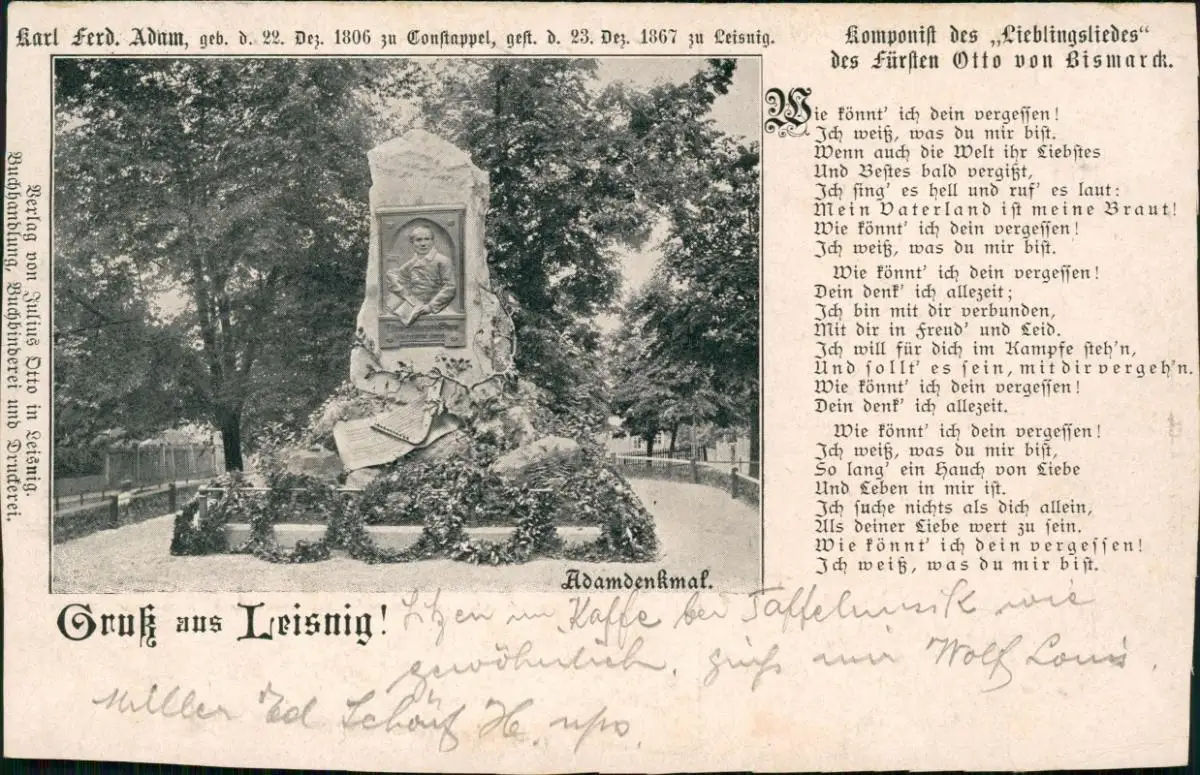 Karl Ferd. Adam, geb. d. 22. Dez. 1806 zu Constappel, gest. d. 23. Dez. 1867 zu Leisnig.
Komponist des „Lieblingsliedes“
des Fürsten Otto von Bismarck.
Wie könnt' ich dein vergessen!
Ich weiß, was du mir bist.
Wenn auch die Welt ihr Liebstes
Und Bestes bald vergißt,
Ich sing' es hell und ruf' es laut:
Mein Vaterland ist meine Braut!
Wie könnt' ich dein vergessen!
Ich weiß, was du mir bist.
Wie könnt' ich dein vergessen!
Dein denk' ich allezeit;
Ich bin mit dir verbunden,
Mit dir in Freud' und Leid.
Ich will für dich im Kampfe steh'n,
Und sollt' es sein, mit dir vergeh'n.
Wie könnt' ich dein vergessen!
Dein denk' ich allezeit.
Wie könnt' ich dein vergessen!
Ich weiß, was du mir bist,
So lang' ein Hauch von Liebe
Und Leben in mir ist.
Ich suche nichts als dich allein,
Als deiner Liebe wert zu sein.
Wie könnt' ich dein vergessen!
Ich weiß, was du mir bist.
Verlag von Julius Otto in Leisnig.
Buchhandlung, Buchbinderei und Druckerei.
Adamdenkmal.
Gruß aus Leisnig!
Sitzen im Kaffe bei Taffelmusik wie
gewöhnlich. Wolf Louis.
Ed